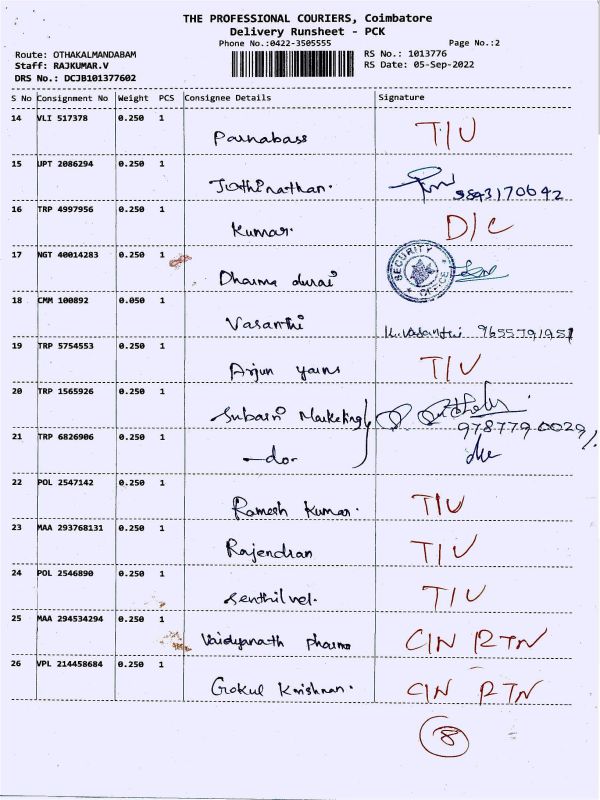 THE PROFESSIONAL COURIERS, Coimbatore
Delivery Runsheet - PCK
Phone No.:0422-3505555 Page No.:2
Route: OTHAKALMANDABAM RS No.: 1013776
Staff: RAJKUMAR.V RS Date: 05-Sep-2022
DRS No.: DCJB101377602
S No Consignment No Weight PCS Consignee Details Signature
14 VLI 517378 0.250 1
Parnabass T/U
15 UPT 2086294 0.250 1
Jothinathan. 9843170642
16 TRP 4997956 0.250 1
Kumar. D/C
17 NGT 40014283 0.250 1
Dharma durai SECURITY OFFICE
18 CMM 100892 0.050 1
Vasanthi K.Vasanthi 9655791951
19 TRP 5754553 0.250 1
Arjun yarns T/U
20 TRP 1565926 0.250 1
Subasri Marketing
9787790029
21 TRP 6826906 0.250 1
-do-
22 POL 2547142 0.250 1
Ramesh Kumar. T/U
23 MAA 293768131 0.250 1
Rajendran T/U
24 POL 2546890 0.250 1
Senthilvel. T/U
25 MAA 294534294 0.250 1
Vaidyanath pharma C/N RTN
26 VPL 214458684 0.250 1
Gokul Krishnan. C/N RTN
8